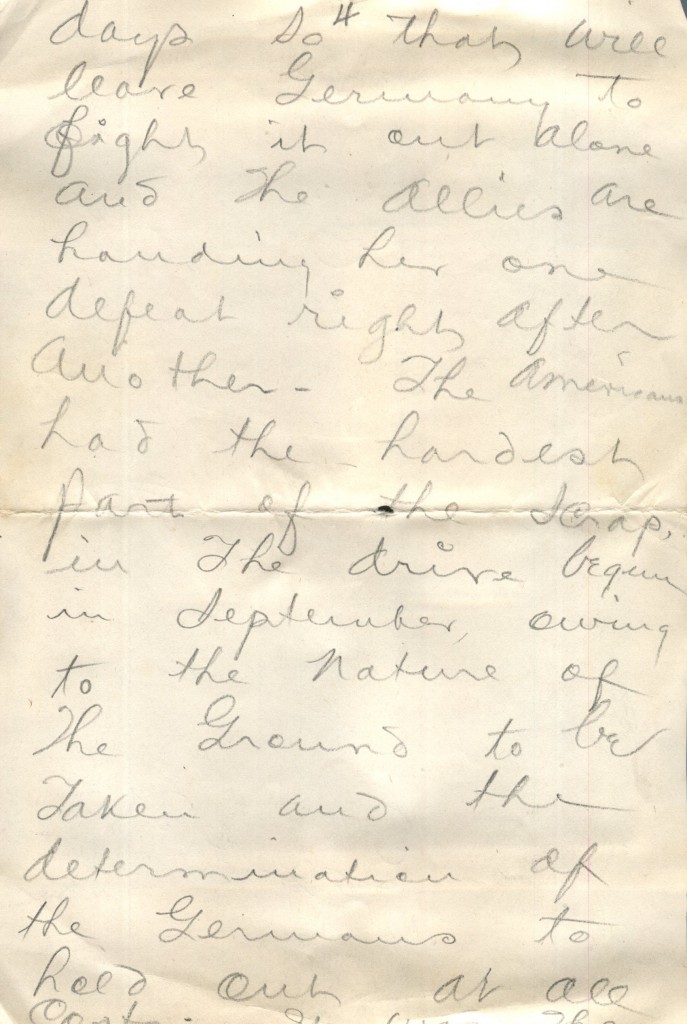 4
days so that will
leave Germany to
fight it out alone
and the Allies are
handing her one
defeat right after
Another - The Americans
had the hardest
part of the scrap,
in The drive begun
in September, owing
to the nature of
The Ground to be
Taken and the
determination of
the Germans to
hold out at all
Cost. It was The